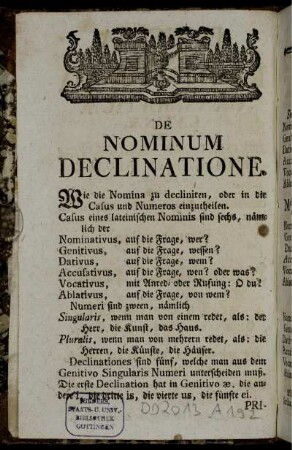 DE
NOMINUM
DECLINATIONE.
Wie die Nomina zu decliniren, oder in die
Casus und Numeros einzutheilen.
Casus eines lateinischen Nominis sind sechs, näm-
lich der
Nominativus, auf die Frage, wer?
Genitivus, auf die Frage, wessen?
Dativus, auf die Frage, wem?
Accusativus, auf die Frage, wen? oder was?
Vocativus, mit Anred- oder Rufung: O du?
Ablativus, auf die Frage, von wem?
Numeri sind zween, nämlich
Singularis, wenn man von einem redet, als: der
Herr, die Kunst, das Haus.
Pluralis, wenn man von mehrern redet, als: die
Herren, die Künste, die Häuser.
Declinationes sind fünf, welche man aus dem
Genitivo Singularis Numeri unterscheiden muß.
Die erste Declination hat in Genitivo æ, die an-
dere i, die dritte is, die vierte us, die fünfte ei.
PRI-
STAATS- U. UNIV.-
BIBLIOTHEK
GÖTTINGEN
DD2013 A 19